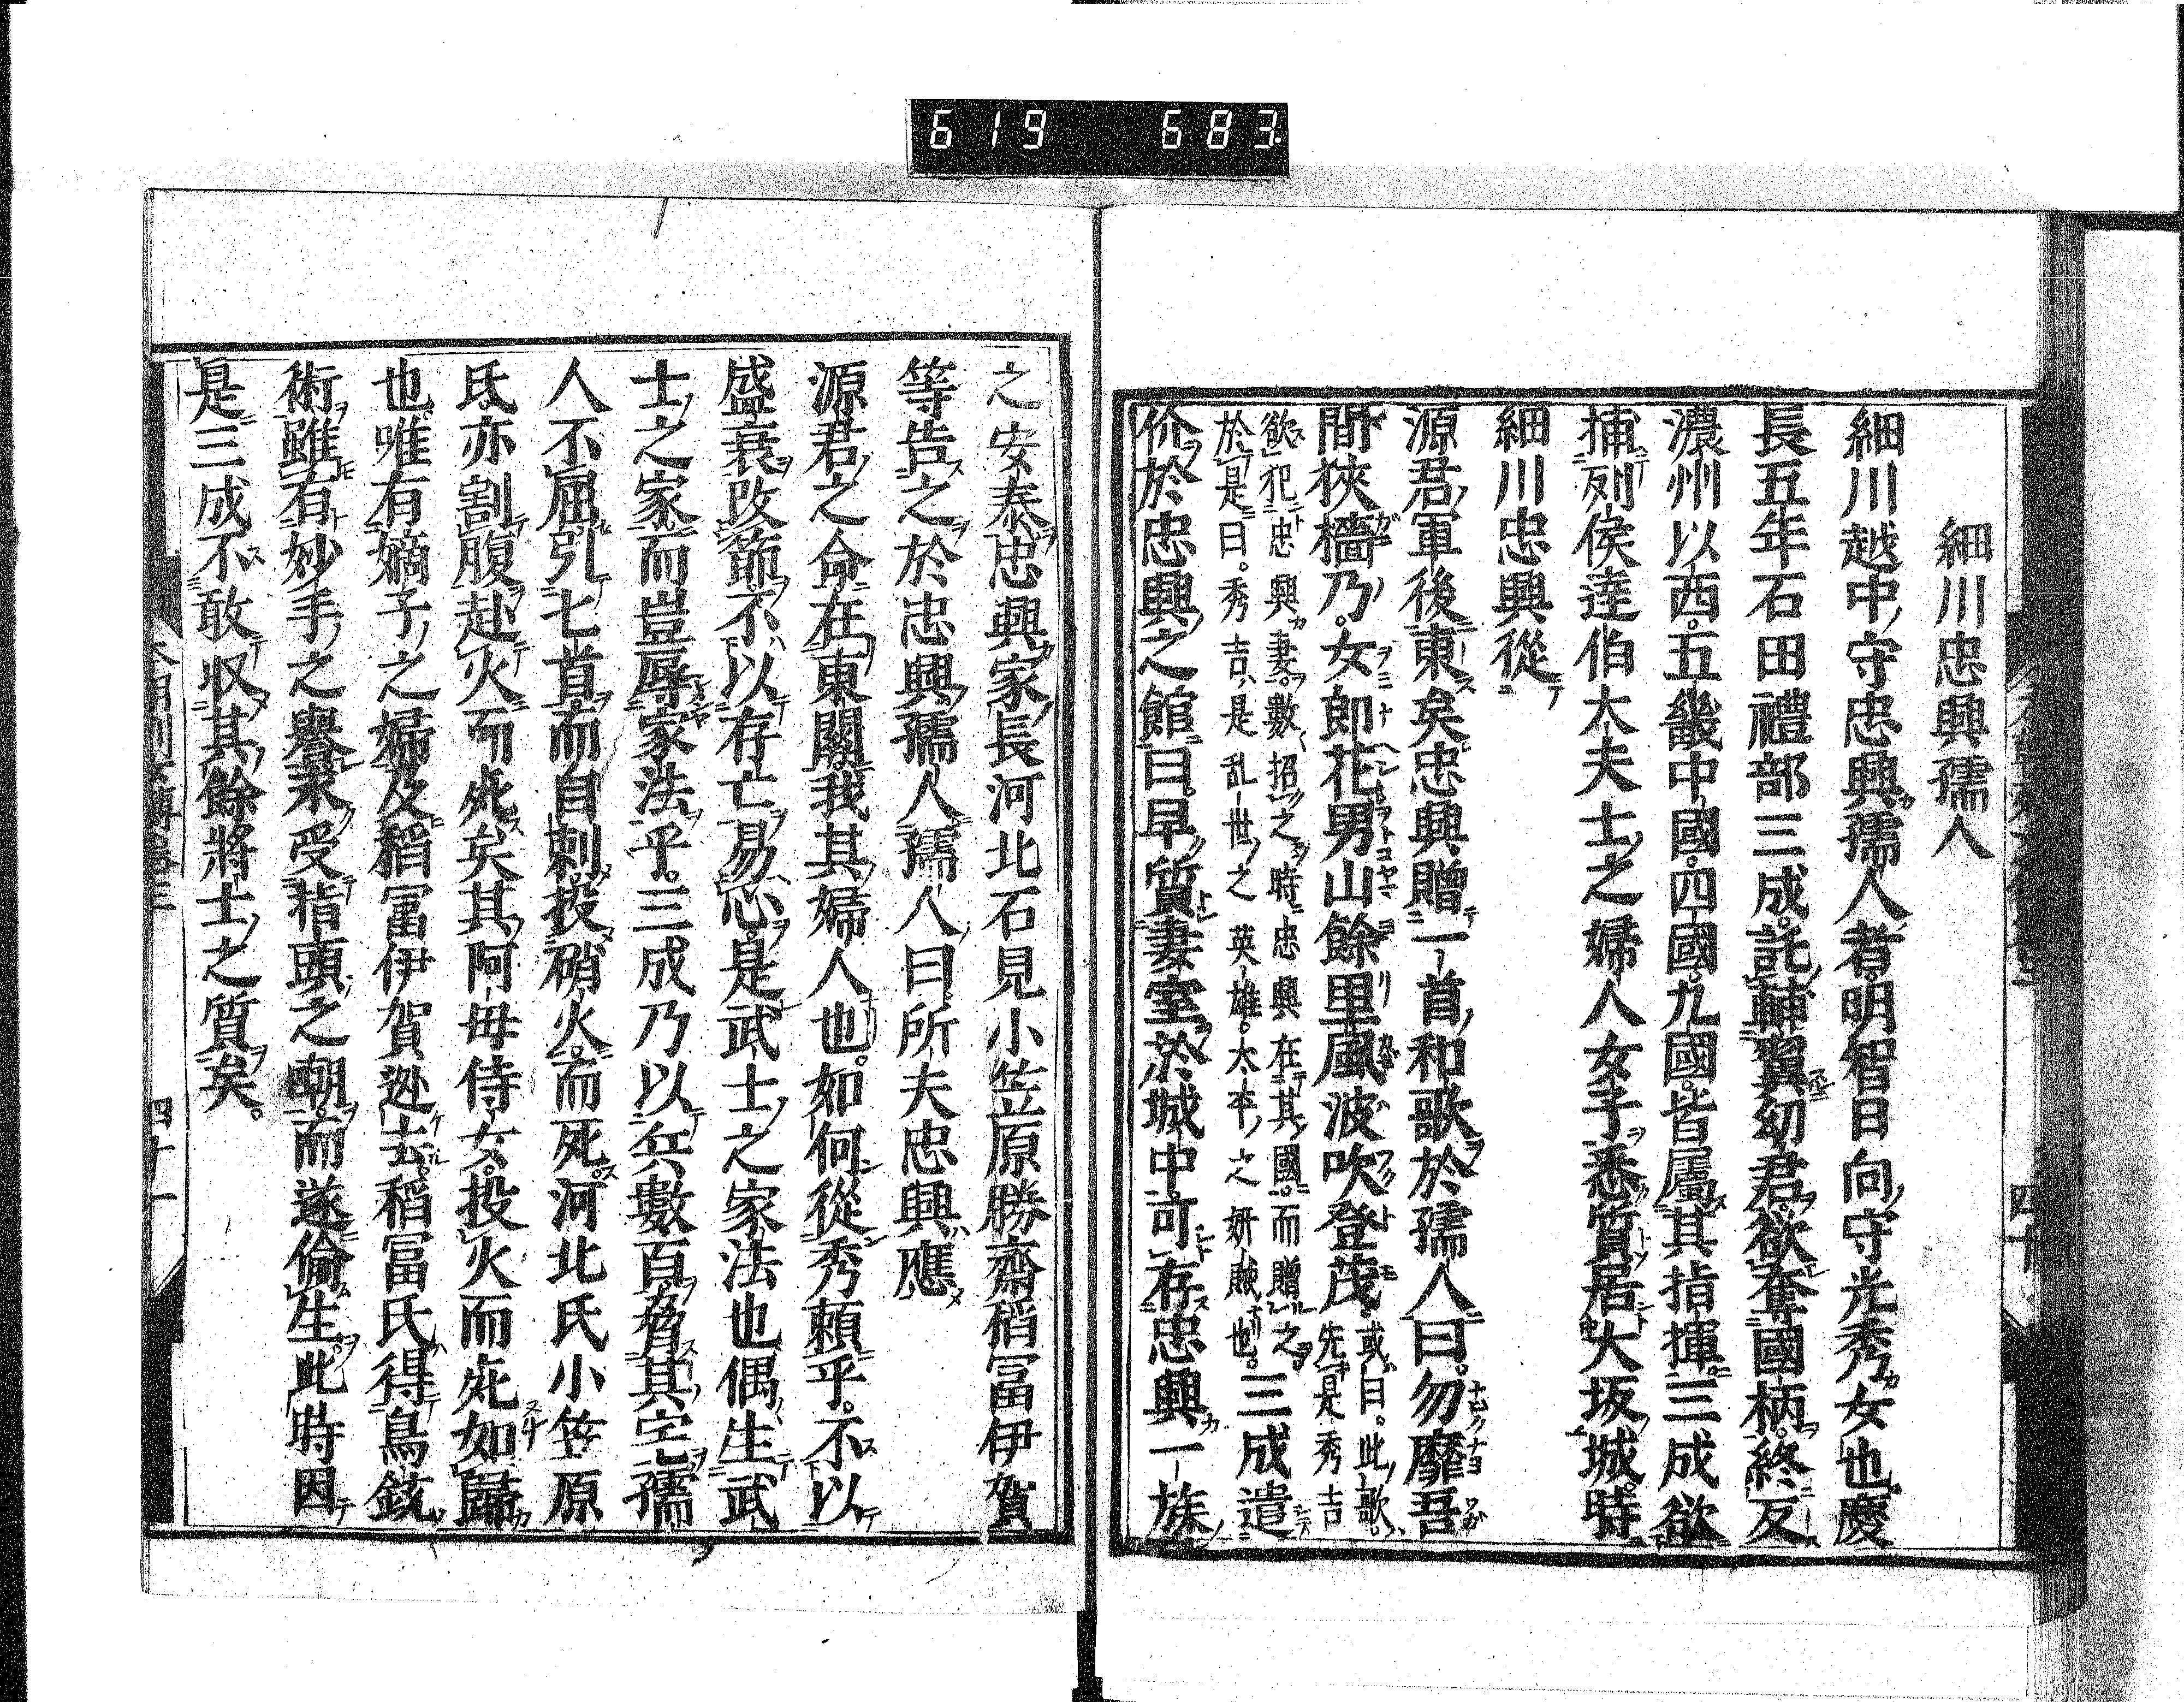 619 683
細川忠興孺人
細川越中守忠興孺人者明智日向守光秀女也慶
長五年石田禮部三成託輔翼幼君欲奪國柄終反
濃州以西五畿中國四國九國皆屬其指揮三成欲
捕列侯達伯大夫士之婦人女子悉質居大坂城時
細川忠興從
源君軍後東矣忠興贈一首和歌於孺人曰勿靡吾
間狹檣乃女郎花男山餘里風波吹登茂或曰此歌先是秀吉
欲犯忠興妻數招之時忠興在其國而贈之
於是曰秀吉是乱世之英雄太平之奸賊也三成遣
价於忠興之館曰早質妻室於城中可存忠興一族
之安泰忠興家長河北石見小笠原勝齋稻冨伊賀
等告之於忠興孺人孺人曰所夫忠興應
源君之命在東關我其婦人也如何從秀賴乎不以
盛衰改節不以存亡易心是武士之家法也偶生武
士之家而豈辱家法乎三成乃以兵數百脅其宅孺
人不屈引七首而自刺投硝火而死河北氏小笠原
氏亦割腹赴火而死矣其阿母侍女投火而死如歸
也唯有嫡子之婦及稻冨伊賀逊去稻冨氏得鳥銃
術雖有妙手之譽永受指頭之嘲而遂偷生此時因
是三成不敢収其餘將士之質矣
四十一